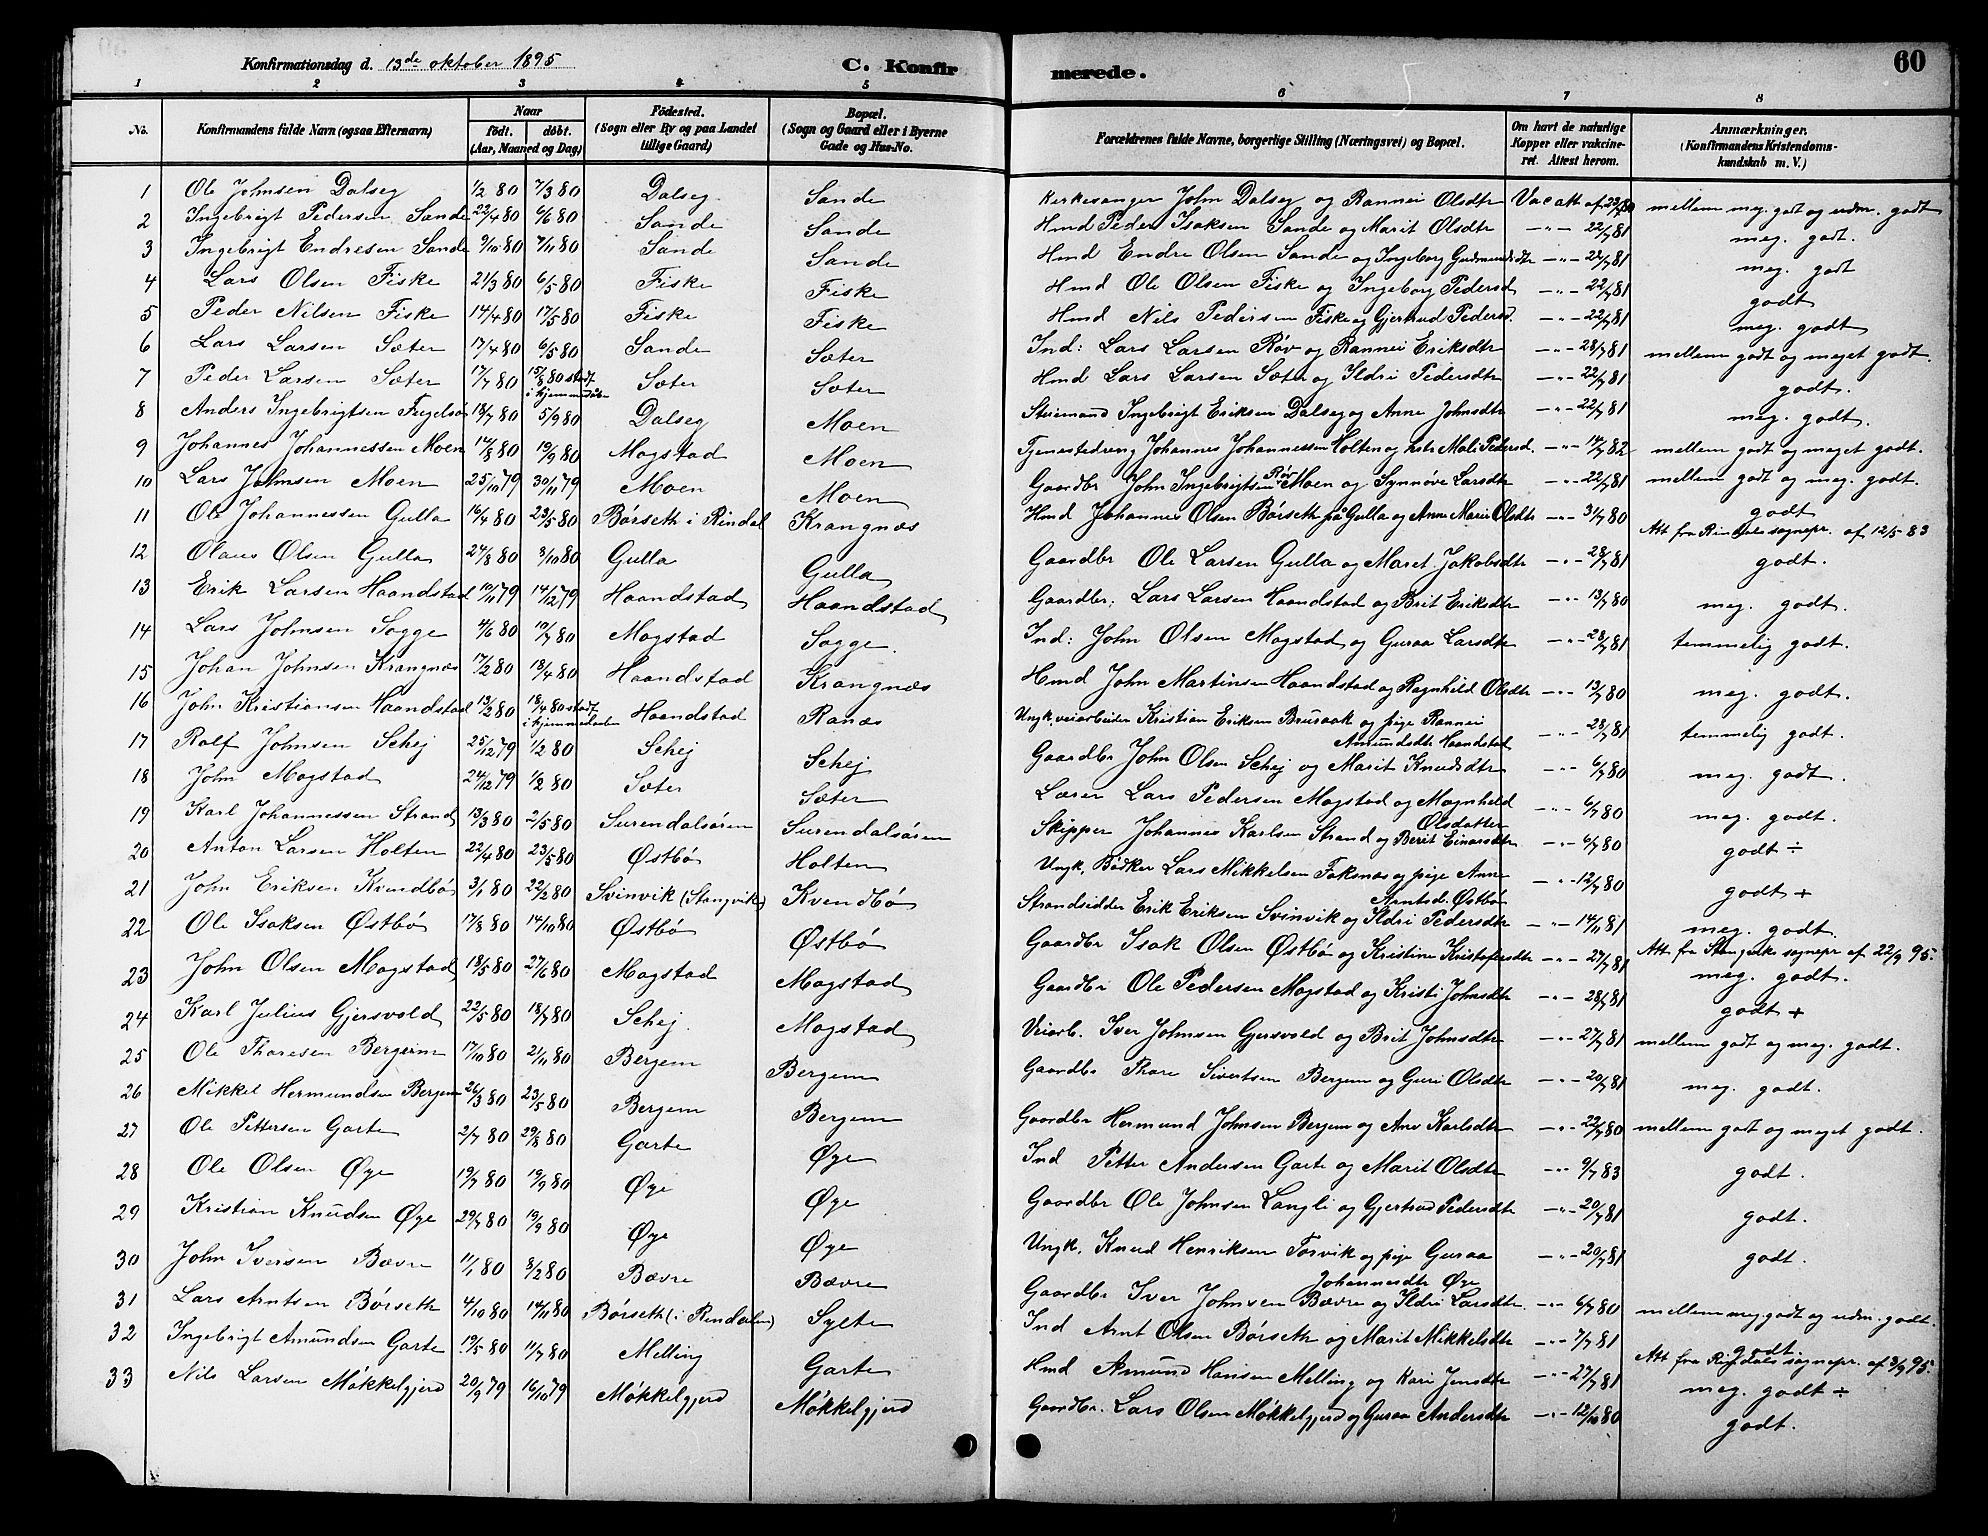 Konfirmationsdag d. 13de oktober 1895 C. Konfirmerede. 60
1 2 3 4 5 6 7 8
No. Konfirmandens fulde Navn (ogsaa Efternavn) Naar født. døbt. (Aar, Maaned og Dag) Fødested. (Sogn eller By og paa Landet tillige Gaard) Bopæl. (Sogn og Gaard eller i Byerne Gade og Hus-No. Forældrenes fulde Navne, borgerlige Stilling (Næringsvei) og Bopæl. Om havt de naturlige Kopper eller vakcineret. Attest herom. Anmærkninger. (Konfirmandens Kristendomskundskab m. V.)
1 Ole Johnsen Dalseg 1/2 80 7/3 80 Dalseg Sande Kirkesanger John Dalseg og Rannei Olsdtr Vac att af mellem meg. godt og udm. godt
2 Ingebrigt Pedersen Sande 22/4 80 6/6 80 Sande Sande Hmd Peder Isaksen Sande og Marit Olsdtr -"- 22/7 81 meg. godt.
3 Ingebrigt Endresen Sande 9/10 80 7/11 80 Sande Sande Hmd Endre Olsen Sande og Ingeborg Gudmundsdtr -"- 22/7 81 meg. godt
4 Lars Olsen Fiske 21/3 80 6/5 80 Fiske Fiske Hmd Ole Olsen Fiske og Ingeborg Pedersd -"- 22/7 81 godt
5 Peder Nilsen Fiske 14/4 80 17/5 80 Fiske Fiske Hmd Nils Pedersen Fiske og Gjertrud Pedersd. -"- 22/7 81 meg. godt
6 Lars Larsen Sæter 17/4 80 6/5 80 Sande Sæter Ind: Lars Larsen Røv og Rannei Eriksdtr -"- 28/7 81 mellem godt og meget godt.
7 Peder Larsen Sæter 17/7 80 15/8 80 stadf. i hjemmedåb Sæter Sæter Hmd Lars Larsen Sæter og Ildri Pedersdtr -"- 22/7 81 godt.
8 Anders Ingebrigtsen 18/7 80 5/9 80 Dalseg Moen Ingebrigt Eriksen Dalseg og Anne Johnsdtr -"- 22/7 81 meg. godt.
9 Johannes Johannessen Moen 14/8 80 19/9 80 Mogstad Moen Tjenestedreng Johannes Johannessen Holten og hstr Mali Pedersd. -"- 14/7 82 mellem godt og meget godt.
10 Lars Johnsen Moen 25/10 79 30/11 79 Moen Moen Gaardbr John Ingebrigtsen Røv Moen og Synnøve Larsdtr -"- 22/7 81 mellem godt og meg. godt.
11 Ole Johannessen Gulla 16/4 80 23/5 80 Børseth i Rindal Krangnæs Hmd Johannes Olsen Børseth på Gulla og Anne Marie Olsdtr -"- 31/7 80 godt
Att fra Rindals sognepr. af 12/5 83
12 Olaus Olsen Gulla 24/8 80 3/10 80 Gulla Gulla Gaardbr Ole Larsen Gulla og Maret Jakobsdtr -"- 28/7 81 godt.
13 Erik Larsen Haandstad 10/11 79 14/12 79 Haandstad Haandstad Gaardbr: Lars Larsen Haandstad og Brit Eriksdtr -"- 13/7 80 meg. godt.
14 Lars Johnsen Sogge 4/6 80 19/7 80 Mogstad Sogge. Ind: John Olsen Mogstad og Guraa Larsdtr -"- 28/7 81 temmelig godt.
15 Johan Johnsen Krangnæs 17/2 80 18/4 80 Haandstad Krangnæs Hmd John Martinsen Haandstad og Ragnhild Olsdtr -"- 13/7 80 meg. godt.
16 John Kristiansen Haandstad 13/2 80 18/4 80 stadf. i hjemmedåb Haandstad Ranæs Ungk. veiarbeider Kristian Eriksen Brusaak og pige Rannei Amundsdtr Haandstad -"- 28/7 81 temmelig godt.
17 Rolf Johnsen Schej 25/12 79 1/2 80 Schej Schej Gaardbr John Olsen Schej og Marit Knudsdtr -"- 6/7 80 meg. godt.
18 John Mogstad 24/12 79 1/2 80 Sæter Sæter Lærer Lars Pedersen Mogstad og Magnhild Olsdatter -"- 6/7 80 meg. godt.
19 Karl Johannessen Strand 13/3 80 2/5 80 Surendalsøren Surendalsøren Skipper Johannes Karlsen Strand og Berit Einarsdtr -"- 6/7 80 godt ÷
20 Anton Larsen Holten 22/4 80 23/5 80 Østbø Holten Ungk. Bødker Lars Mikkelsen Foksnæs og pige Anne Arntsd. Østbø -"- 12/7 80 godt +
21 John Eriksen Kvendbø 3/1 80 22/2 80 Svinvik (Stangvik) Kvendbø Strandsidder Erik Eriksen Svinvik og Ildri Pedersdtr -"- 14/11 81 meg. godt.
Att fra Stangviks sognepr af 22/9 95.
22 Ole Isaksen Østbø 17/8 80 14/10 80 Østbø Østbø Gaardbr Isak Olsen Østbø og Kristine Kristofersdtr -"- 27/7 81 meg. godt.
23 John Olsen Mogstad 18/5 80 27/6 80 Mogstad Mogstad Gaardbr Ole Pedersen Mogstad og Kristi Johnsdtr -"- 28/7 81 godt +
24 Karl Julius Gjersvold 22/5 80 18/7 80 Schej. Mogstad Veiarb. Iver Johnsen Gjersvold og Brit Johnsdtr -"- 27/7 81 mellem godt og meg. godt.
25 Ole Tharesen Bergem 17/10 80 2/11 80 Bergem Bergem Gaardbr Thare Sivertsen Bergem og Guri Olsdtr -"- 20/7 81 meg. godt.
26 Mikkel Hermundsen Bergem 26/3 80 23/5 80 Bergem Bergem Gaardbr Hermund Johnsen Bergem og Ane Karlsdtr -"- 22/7 80 mellem godt og meget godt.
27 Ole Pettersen Garte 2/7 80 29/8 80 Garte Øye Ind Petter Andersen Garte og Marit Olsdtr -"- 9/7 83 godt.
28 Ole Olsen Øye 19/7 80 19/9 80 Øye Øye Gaardbr Ole Johnsen Langli og Gjertrud Pedersdtr -"- 20/7 81 godt.
29 Kristian Knudsen Øye 29/7 80 19/9 80 Øye Øye Ungk. Knud Henriksen Torvik og pige Guraa Johannesdtr Øye -"- 20/7 81 godt.
30 John Iversen Bævre 11/1 80 8/2 80 Bævre Bævre Gaardbr Iver Johnsen Bævre og Ildri Larsdtr. -"- 6/7 80 mellem meg. godt og udm. godt.
31 Lars Arntsen Børseth 4/10 80 14/11 80 Børseth (i Rindalen) Sylte Ind Arnt Olsen Børseth og Marit Mikkelsdtr -"- 7/7 81 godt.
Att fra Rindals sognepr. af 3/9 95.
32 Ingebrigt Amundsen Garte 19/5 80 11/7 80 Melling Garte Hmd Amund Hansen Melling og Kari Jensdtr -"- 27/7 81 meg. godt ÷
33 Nils Larsen Møkkelgjerd 20/9 79 16/10 79 Møkkelgjerd Møkkelgjerd Gaardbr. Lars Olsen Møkkelgjerd og Guraa Andersdtr -"- 12/10 80 godt.